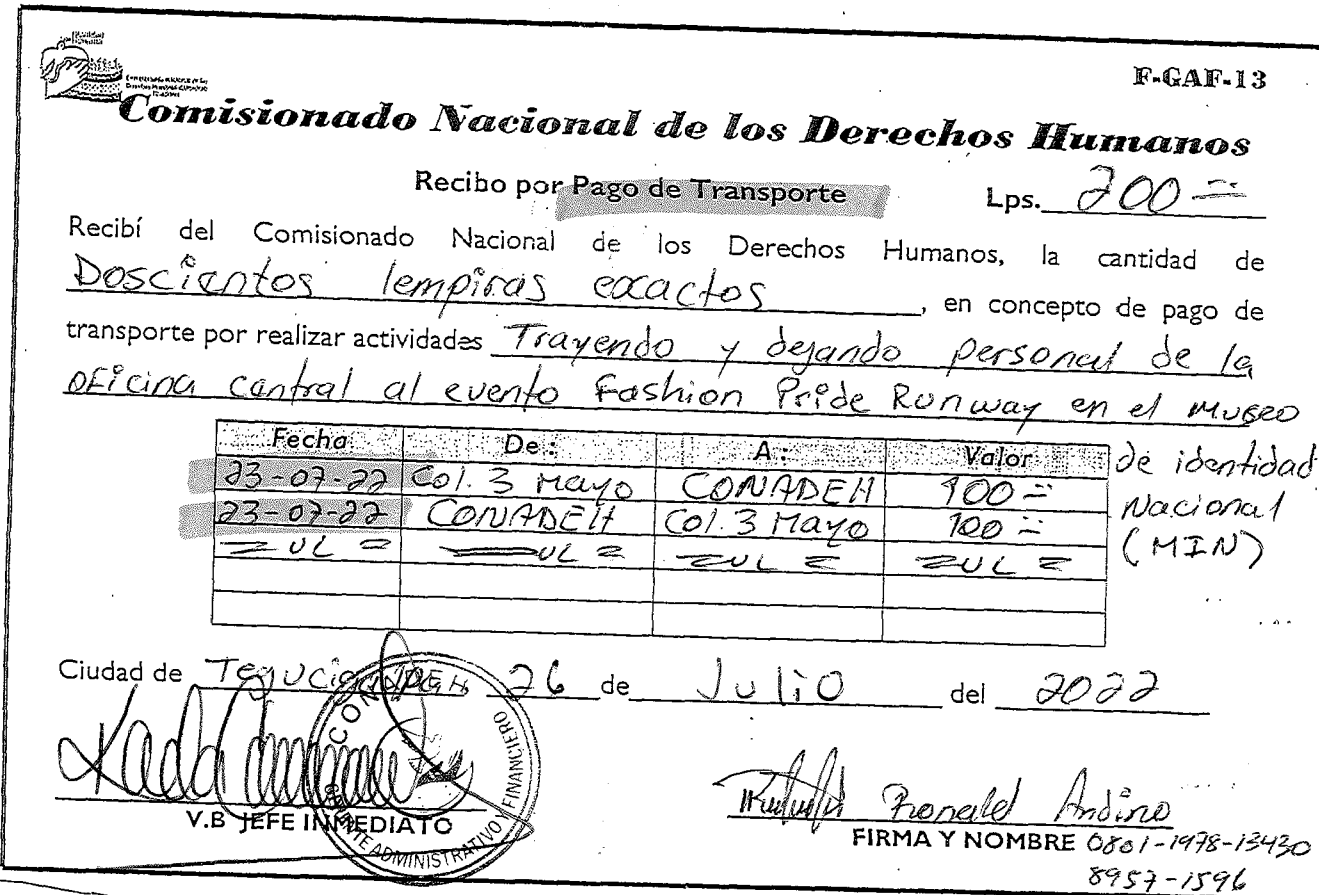 F-GAF-13
Comisionado Nacional de los Derechos Humanos
Recibo por Pago de Transporte Lps. 200=
Recibí del Comisionado Nacional de los Derechos Humanos, la cantidad de
Doscientos lempiras exactos, en concepto de pago de
transporte por realizar actividades Trayendo y dejando personal de la
oficina central al evento Fashion Pride Runway en el Museo
de identidad
Nacional
(MIN)
Fecha De: A: Valor
23-07-22 Col. 3 Mayo CONADEH 100=
23-07-22 CONADEH Col. 3 Mayo 100=
=UL= =UL= =UL= =UL=
Ciudad de Tegucigalpa 26 de Julio del 2022
CONADEH
GERENTE ADMINISTRATIVO Y FINANCIERO
V.B JEFE INMEDIATO
Ronald Andino
FIRMA Y NOMBRE 0801-1978-13430
8957-1596